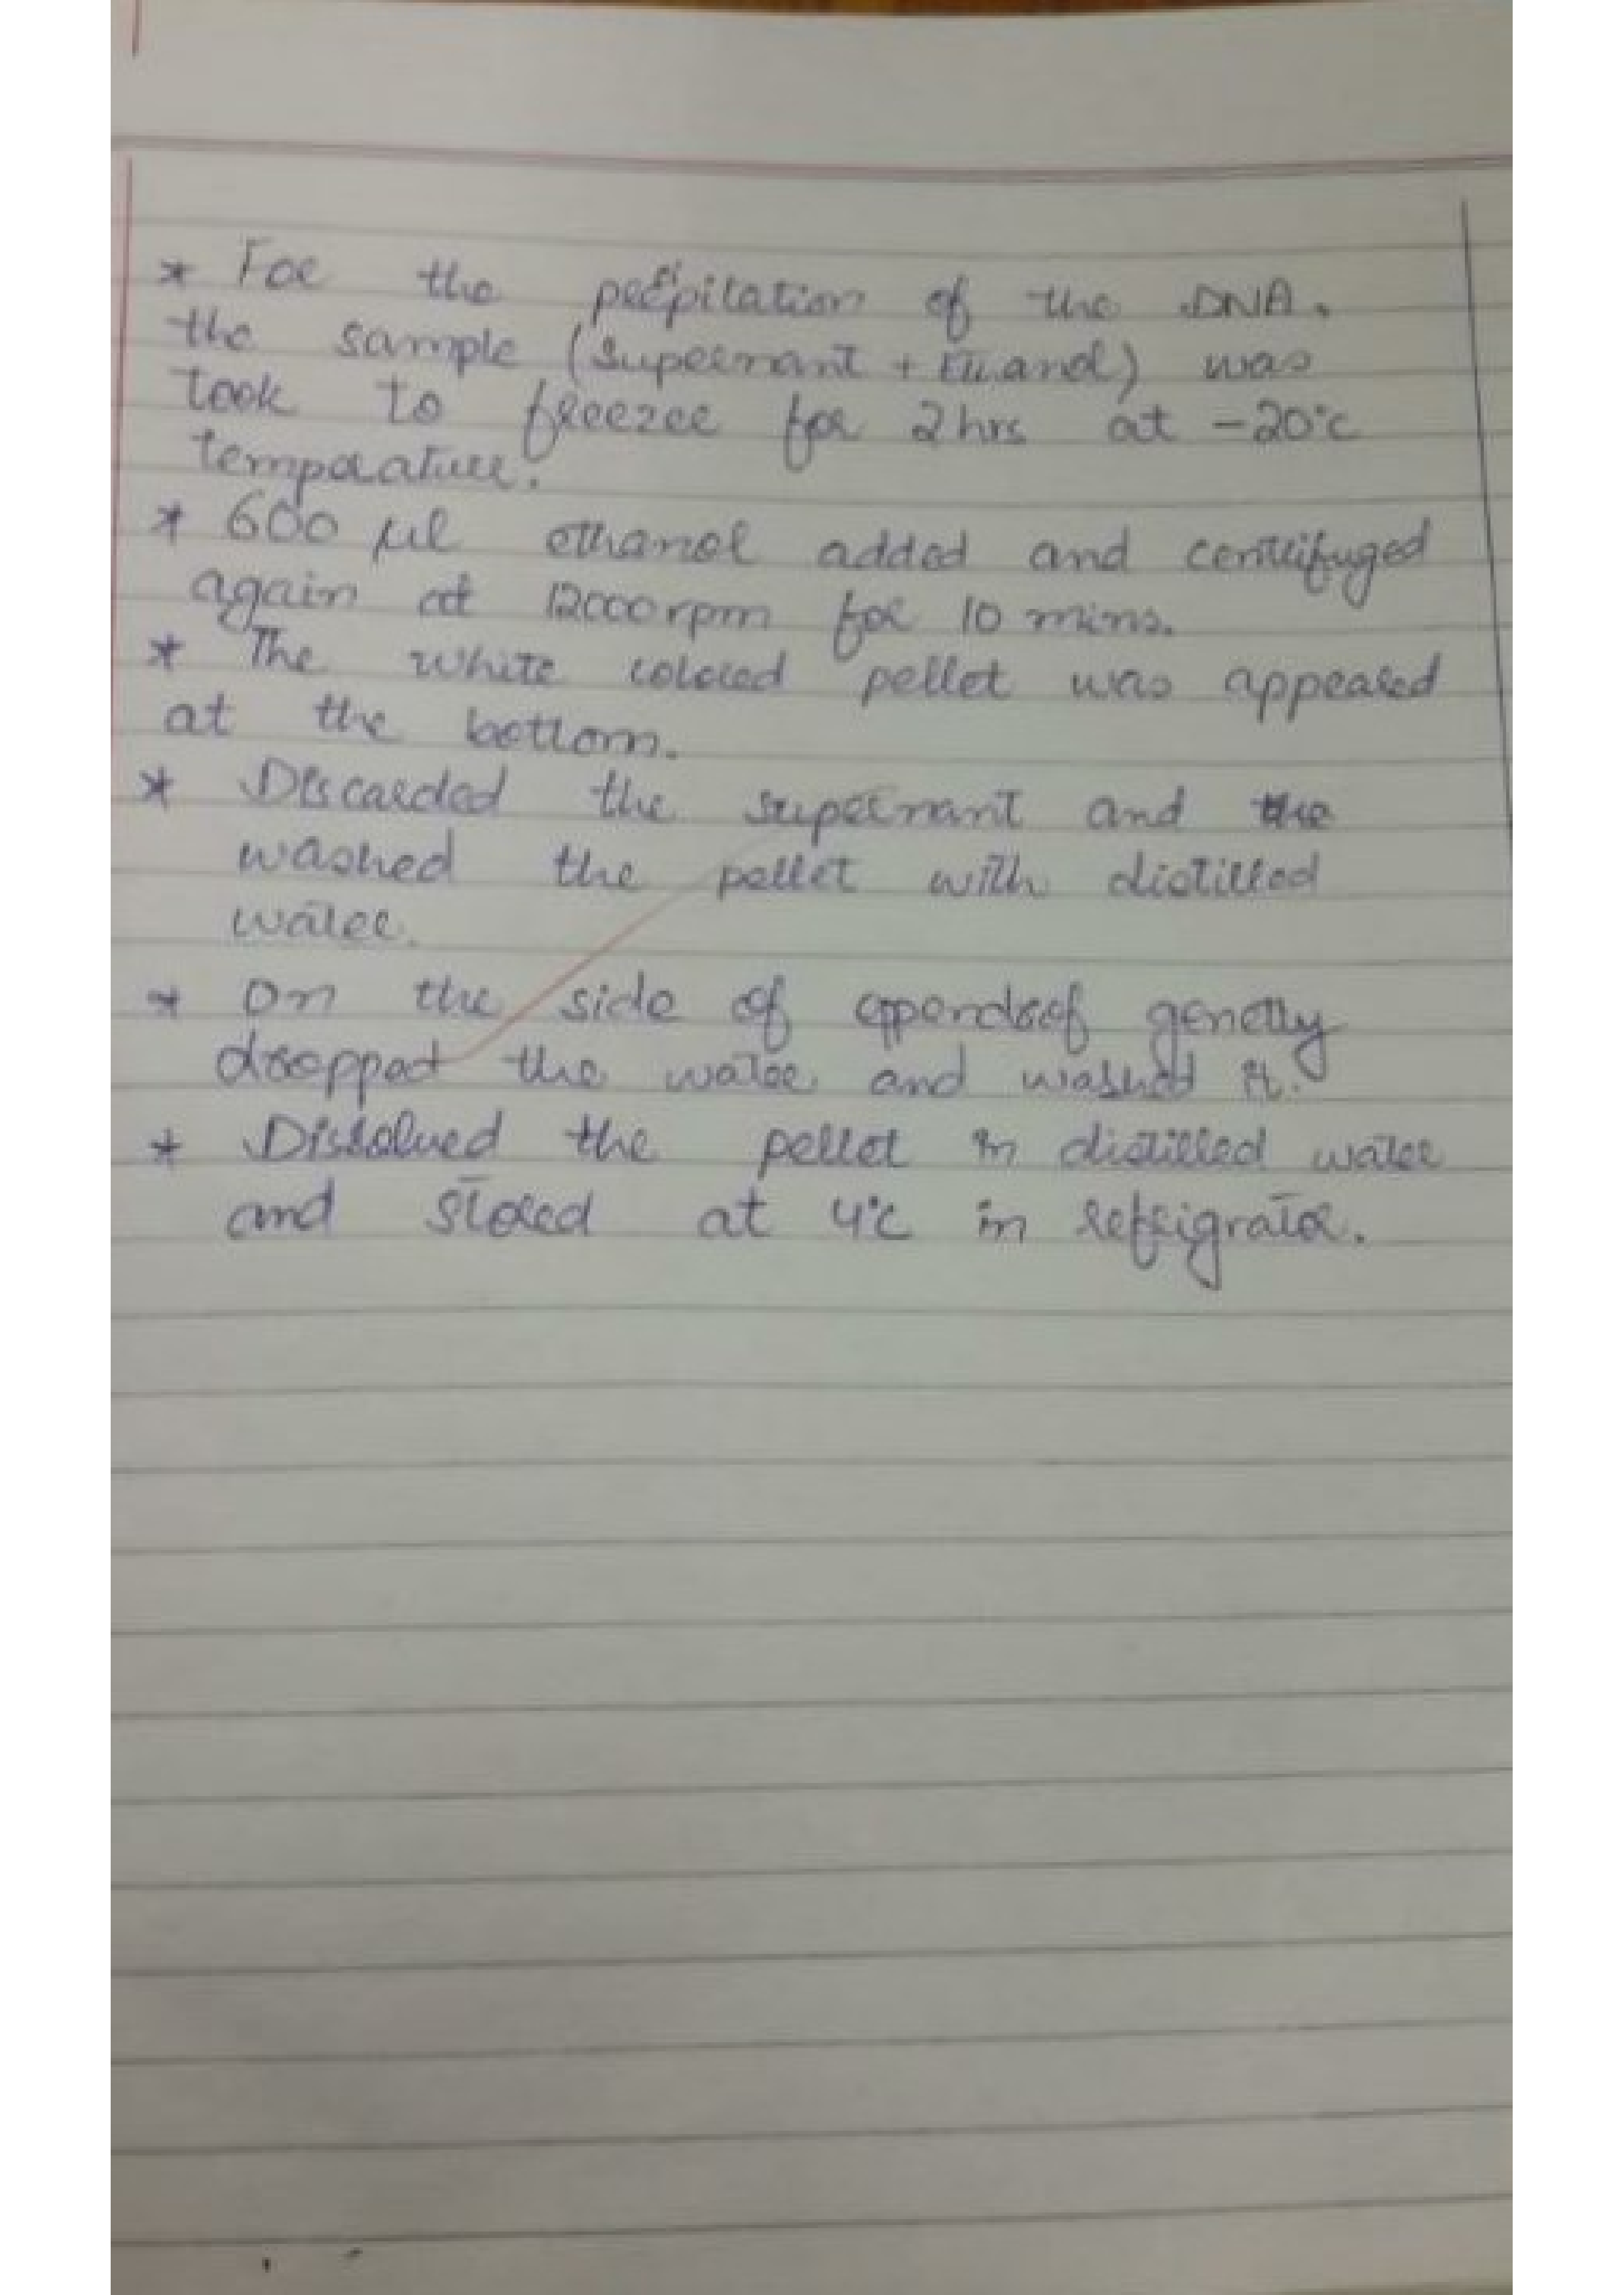 * For the precipitation of the DNA,
the sample (supernant + Ethanol) was
took to freezee for 2 hrs at -20°c
temperature.
* 600 μl ethanol added and centrifuged
again at 12000 rpm for 10 mins.
* The white colored pellet was appeared
at the bottom.
* Discarded the supernant and the
washed the pellet with distilled
water.
* On the side of ependrof genetly
dropped the water and washed it.
* Dissolved the pellet in distilled water
and stored at 4°c in refrigrator.